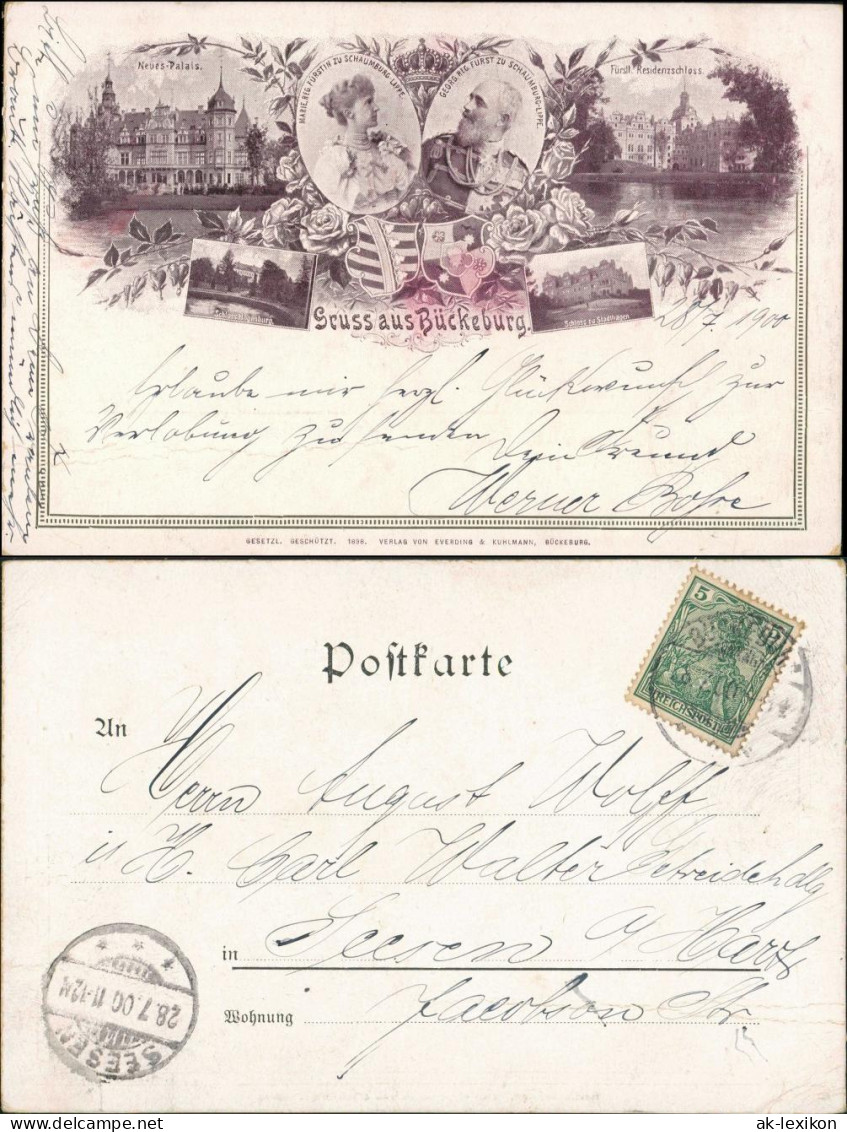 Neues-Palais.
MARIE, REG. FÜRSTIN ZU SCHAUMBURG-LIPPE.
GEORG, REG. FÜRST ZU SCHAUMBURG-LIPPE.
Fürstl. Residenzschloss.
Schloss zu Stadthagen
Gruss aus Bückeburg.
28/7. 1900
Erlaube mir herzl. Glückwunsch zur
Verlobung zu senden
Dein Freund
Werner
GESETZL. GESCHÜTZT. 1898. VERLAG VON EVERDING & KUHLMANN, BÜCKEBURG.
Postkarte
5
REICHSPOST
An
Herrn August Wolff
H. Carl Walter Getreidehdlg
in Seesen a/Harz
Wohnung Jacobson Str.
SEESEN
28.7.00 11-12N
ak-lexikon